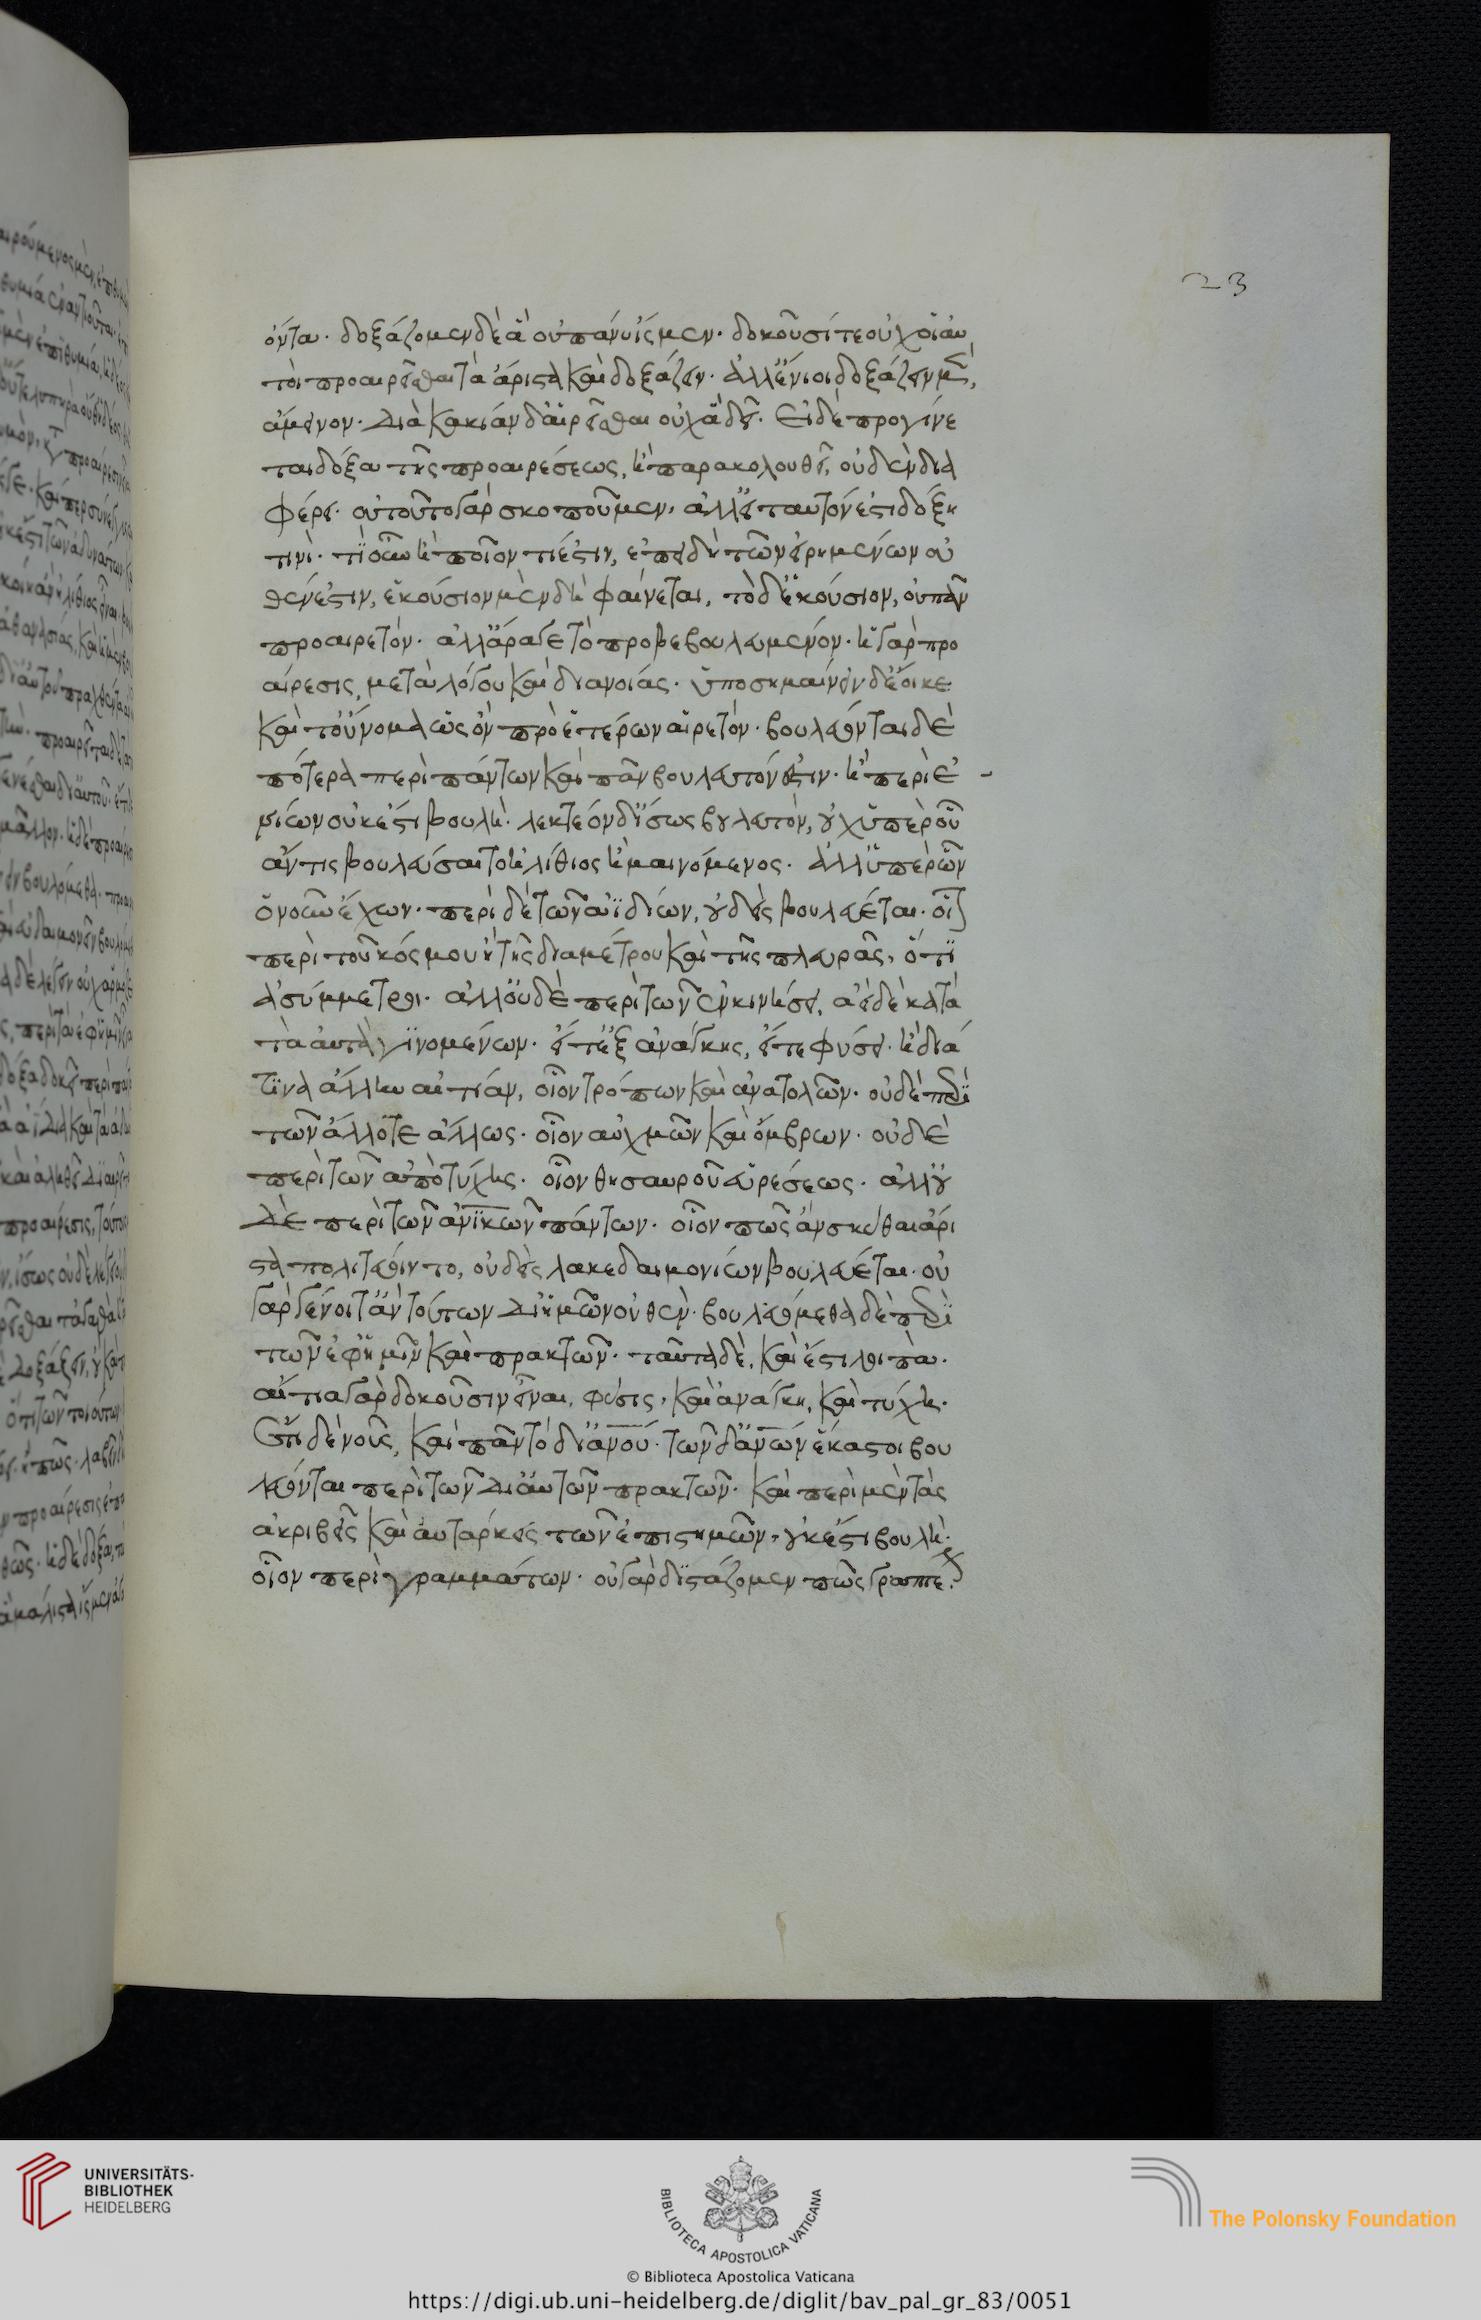 23
ὄντα. δοξάζομεν δὲ ἃ οὐ πάνυ ἴσμεν. δοκοῦσί τε οὐχ οἱ αὐ
τοὶ προαιρεῖσθαι τὰ ἄριστα καὶ δοξάζειν. ἀλλ' ἔνιοι δοξάζειν μὲν,
ἄμεινον. διὰ κακίαν δ' αἱρεῖσθαι οὐχ ἃ δεῖ. εἰ δὲ προγίνε
ται δόξα τῆς προαιρέσεως, ἢ παρακολουθεῖ, οὐδὲν δια
φέρει. οὐ τοῦτο γὰρ σκοποῦμεν, ἀλλ' εἰ ταυτόν ἐστι δόξῃ
τινί. τί οὖν ἢ ποῖον τί ἐστιν, ἐπειδὴ τῶν εἰρημένων οὐ
θέν ἐστιν, ἑκούσιον μὲν δὴ φαίνεται, τὸ δ' ἑκούσιον, οὐ πᾶν
προαιρετόν. ἀλλ' ἆρά γε τὸ προβεβουλευμένον. ἡ γὰρ προ
αίρεσις, μετὰ λόγου καὶ διανοίας. ὑποσημαίνειν δ' ἔοικε
καὶ τοὔνομα ὡς ὂν πρὸ ἑτέρων αἱρετόν. βουλεύονται δὲ
πότερα περὶ πάντων καὶ πᾶν βουλευτόν ἐστιν. ἢ περὶ ἐ
νίων οὐκ ἔστι βουλή. λεκτέον δ' ἴσως βουλευτὸν, οὐχ ὑπὲρ οὗ
ἄν τις βουλεύσαιτο ἠλίθιος ἢ μαινόμενος. ἀλλ' ὑπὲρ ὧν
ὁ νοῦν ἔχων. περὶ δὲ τῶν ἀϊδίων, οὐδεὶς βουλεύεται. οἷον
περὶ τοῦ κόσμου ἢ τῆς διαμέτρου καὶ τῆς πλευρᾶς, ὅτι
ἀσύμμετροι. ἀλλ' οὐδὲ περὶ τῶν ἐν κινήσει, ἀεὶ δὲ κατὰ
τὰ αὐτὰ γινομένων. εἴτ' ἐξ ἀνάγκης, εἴτε φύσει. ἢ διά
τινα ἄλλην αἰτίαν, οἷον τροπῶν καὶ ἀνατολῶν. οὐδὲ περὶ
τῶν ἄλλοτε ἄλλως. οἷον αὐχμῶν καὶ ὄμβρων. οὐδὲ
περὶ τῶν ἀπὸ τύχης. οἷον θησαυροῦ εὑρέσεως. ἀλλ' οὐ
δὲ περὶ τῶν ἀνικῶν πάντων. οἷον πῶς ἂν σκύθαι ἄρι
στα πολιτεύοιντο, οὐδεὶς λακεδαιμονίων βουλεύεται. οὐ
γὰρ γένοιτ' ἂν τούτων δι' ἡμῶν οὐθέν. βουλευόμεθα δὲ περὶ
τῶν ἐφ' ἡμῖν καὶ πρακτῶν. ταῦτα δὲ, καὶ ἔστι λοιπά.
αἴτια γὰρ δοκοῦσιν εἶναι, φύσις, καὶ ἀνάγκη, καὶ τύχη.
ἔτι δὲ νοῦς, καὶ πᾶν τὸ δι' ἀνου. τῶν δ' ἀνων ἕκαστοι βου
λεύονται περὶ τῶν δι' αὑτῶν πρακτῶν. καὶ περὶ μὲν τὰς
ἀκριβεῖς καὶ αὐτάρκεις τῶν ἐπιστημῶν, οὐκ ἔστι βουλή.
οἷον περὶ γραμμάτων. οὐ γὰρ διστάζομεν πῶς γραπτέον.
UNIVERSITÄTS-
BIBLIOTHEK
HEIDELBERG
BIBLIOTECA APOSTOLICA VATICANA
The Polonsky Foundation
© Biblioteca Apostolica Vaticana
https://digi.ub.uni-heidelberg.de/diglit/bav_pal_gr_83/0051